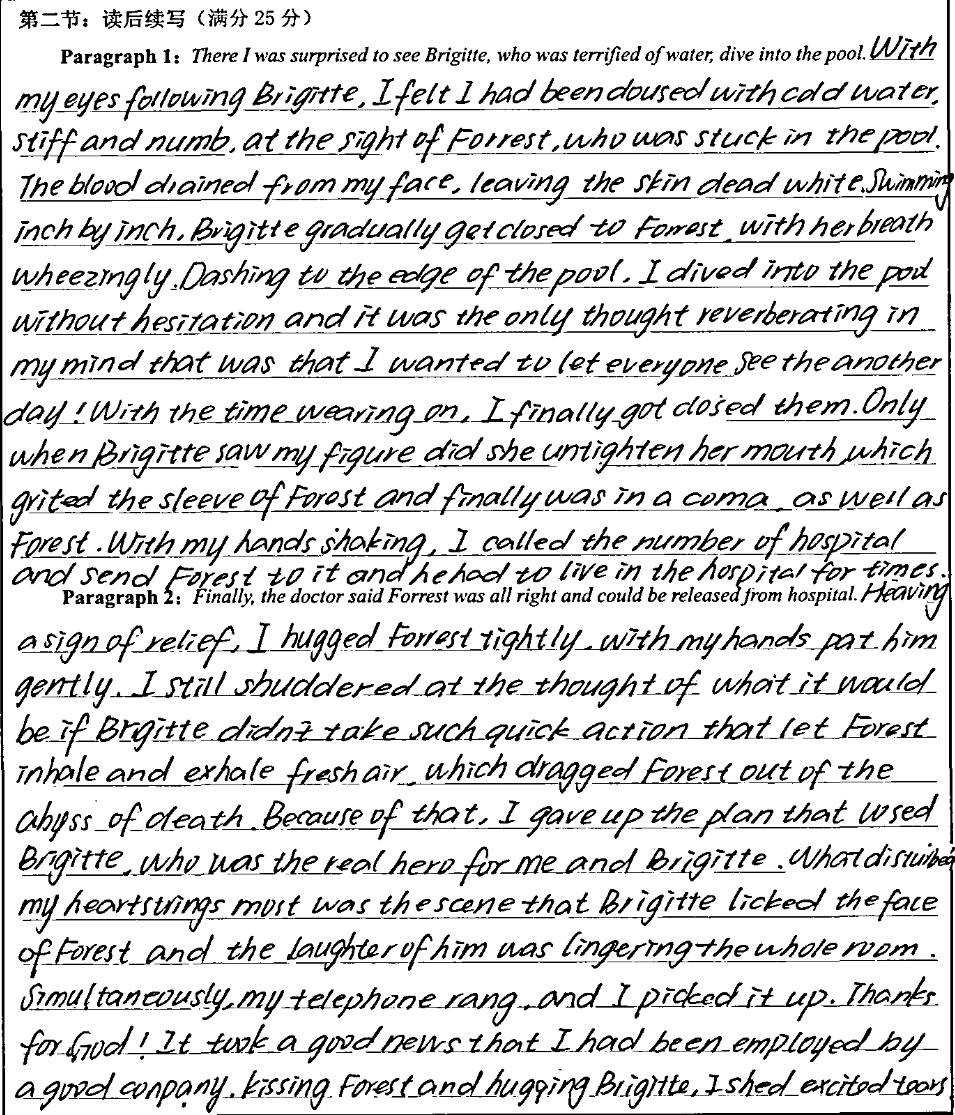 第二节：读后续写（满分 25 分）
Paragraph 1: There I was surprised to see Brigitte, who was terrified of water, dive into the pool. With
my eyes following Brigitte, I felt I had been doused with cold water,
stiff and numb, at the sight of Forrest, who was stuck in the pool.
The blood drained from my face, leaving the skin dead white. Swimming
inch by inch, Brigitte gradually get closed to Forrest, with her breath
wheezingly. Dashing to the edge of the pool, I dived into the pool
without hesitation and it was the only thought reverberating in
my mind that was that I wanted to let everyone see the another
day! With the time wearing on, I finally got closed them. Only
when Brigitte saw my figure did she untighten her mouth, which
grited the sleeve of Forest and finally was in a coma, as well as
Forest. With my hands shaking, I called the number of hospital
and send Forest to it and he had to live in the hospital for times.
Paragraph 2: Finally, the doctor said Forrest was all right and could be released from hospital. Heaving
a sign of relief, I hugged Forrest tightly, with my hands pat him
gently. I still shuddered at the thought of what it would
be if Brgitte didn't take such quick action that let Forest
inhale and exhale fresh air, which dragged Forest out of the
abyss of death. Because of that, I gave up the plan that used
Brigitte, who was the real hero for me and Brigitte. What disturbed
my heartstrings most was the scene that Brigitte licked the face
of Forest and the laughter of him was lingering the whole room.
Simultaneously, my telephone rang, and I picked it up. Thanks
for God! It took a good news that I had been employed by
a good conpany. kissing Forest and hugging Brigitte, I shed excited tears